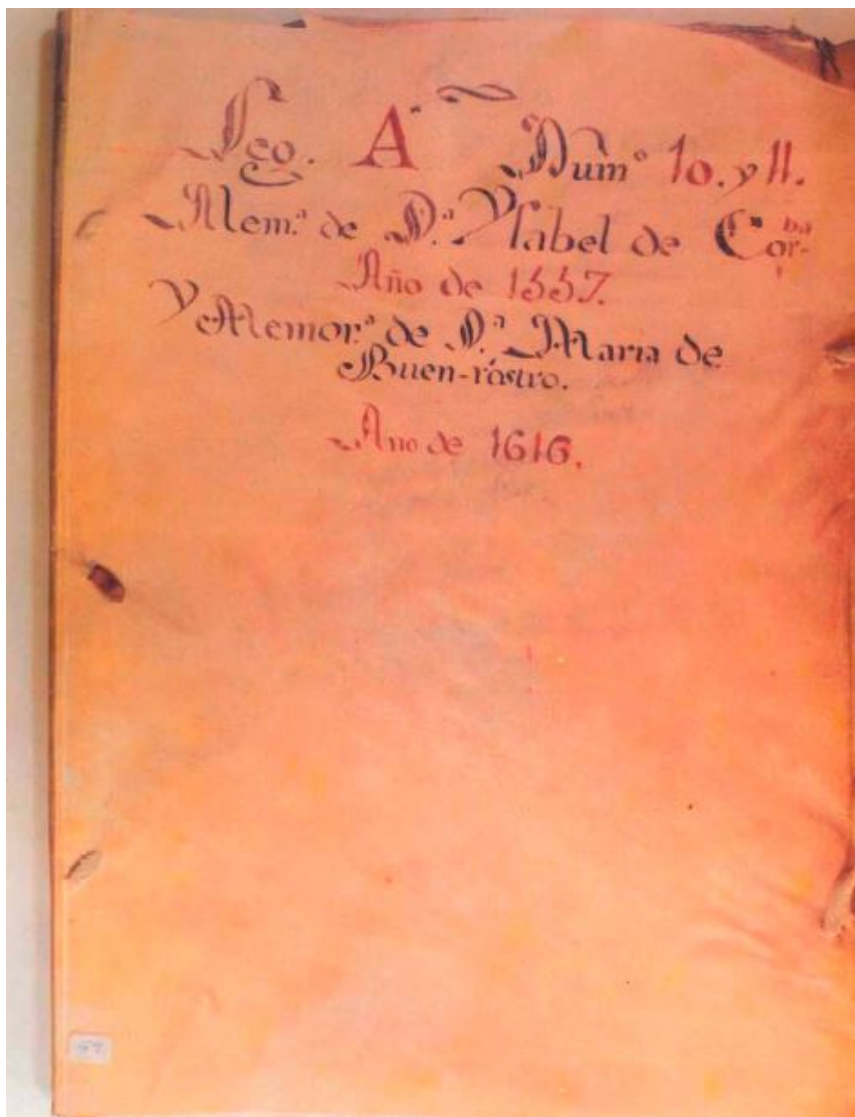 Leg. A. Num.º 10. y 11.
Mem.ª de D.ª Ysabel de Cor-ba
Año de 1557.
Y Memor.ª de D.ª Maria de
Buen-rostro.
Año de 1616.